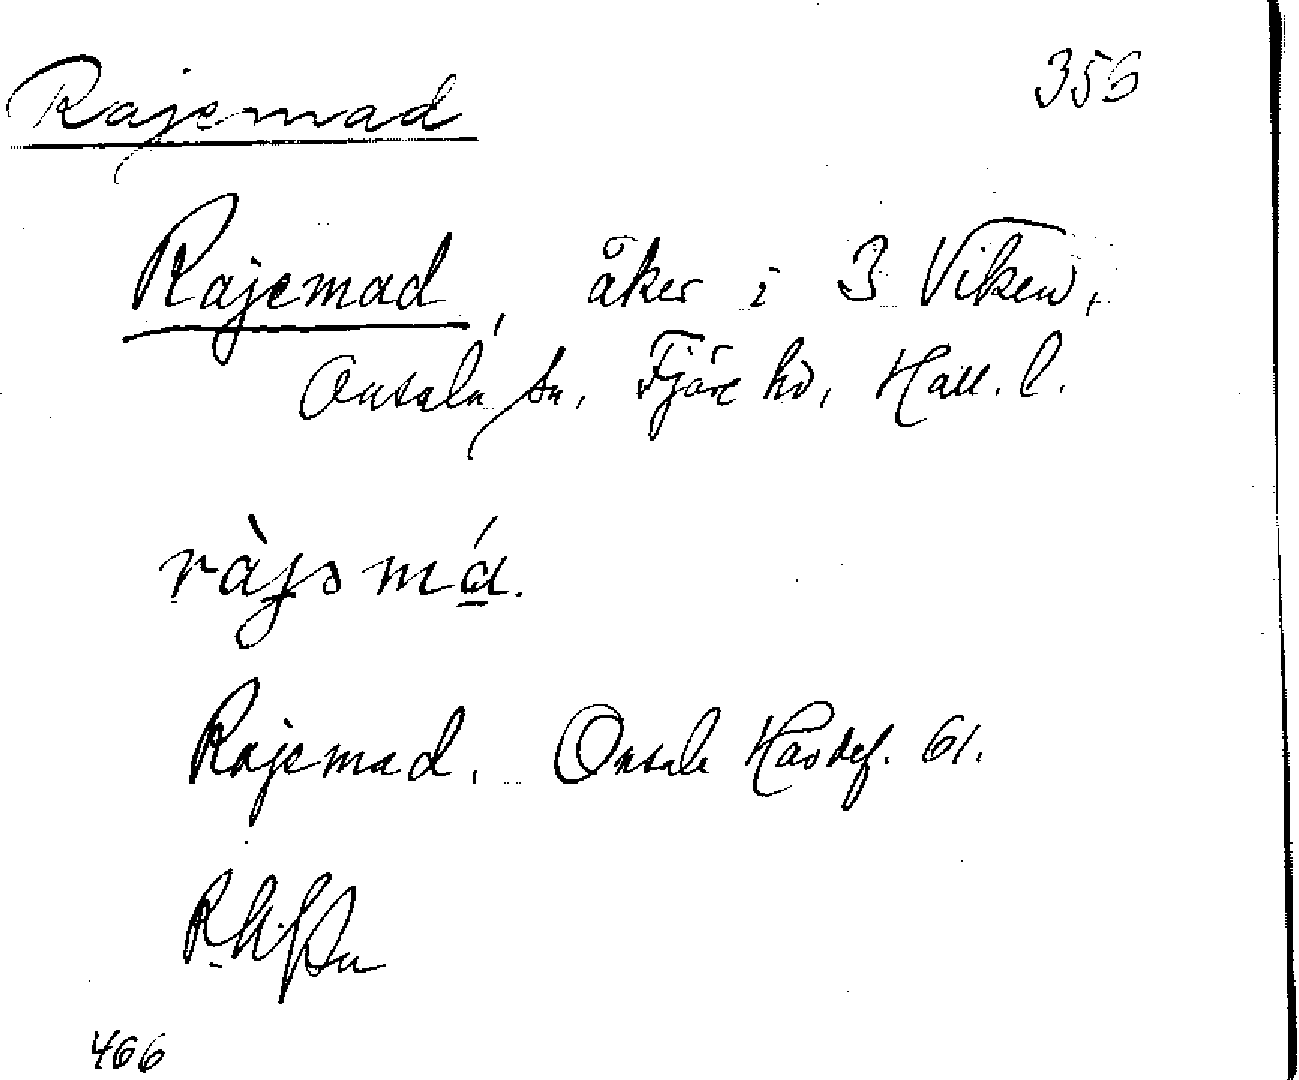 Rajemad 356
Rajemad, åker i 3 Viken,
Onsala sn, Fjäre hd, Hall. l.
Rajemad. Onsala 61.
466